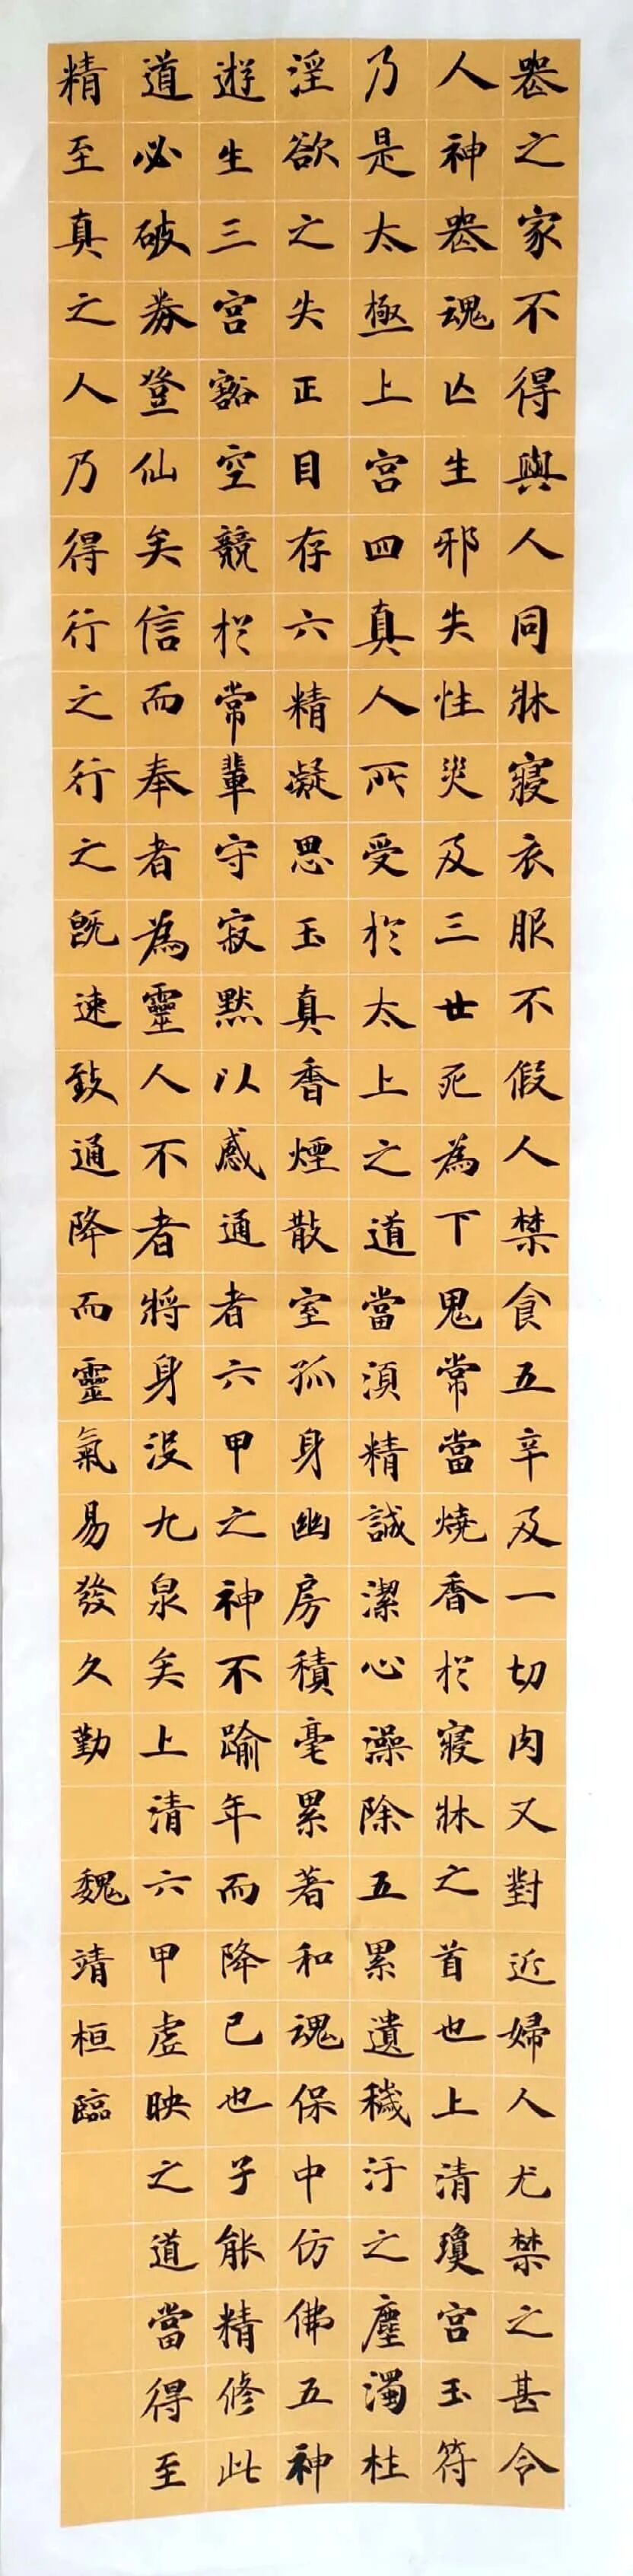 喪之家不得與人同牀寢衣服不假人禁食五辛及一切肉又對近婦人尤禁之甚令
人神喪魂亡生邪失性災及三世死為下鬼常當燒香於寢牀之首也上清瓊宮玉符
乃是太極上宮四真人所受於太上之道當須精誠潔心澡除五累遺穢汙之塵濁杜
淫欲之失正目存六精凝思玉真香煙散室孤身幽房積毫累著和魂保中仿佛五神
遊生三宮豁空競於常輩守寂默以感通者六甲之神不踰年而降已也子能精修此
道必破券登仙矣信而奉者為靈人不者將身沒九泉矣上清六甲虛映之道當得至
精至真之人乃得行之行之既速致通降而靈氣易發久勤
魏靖桓臨